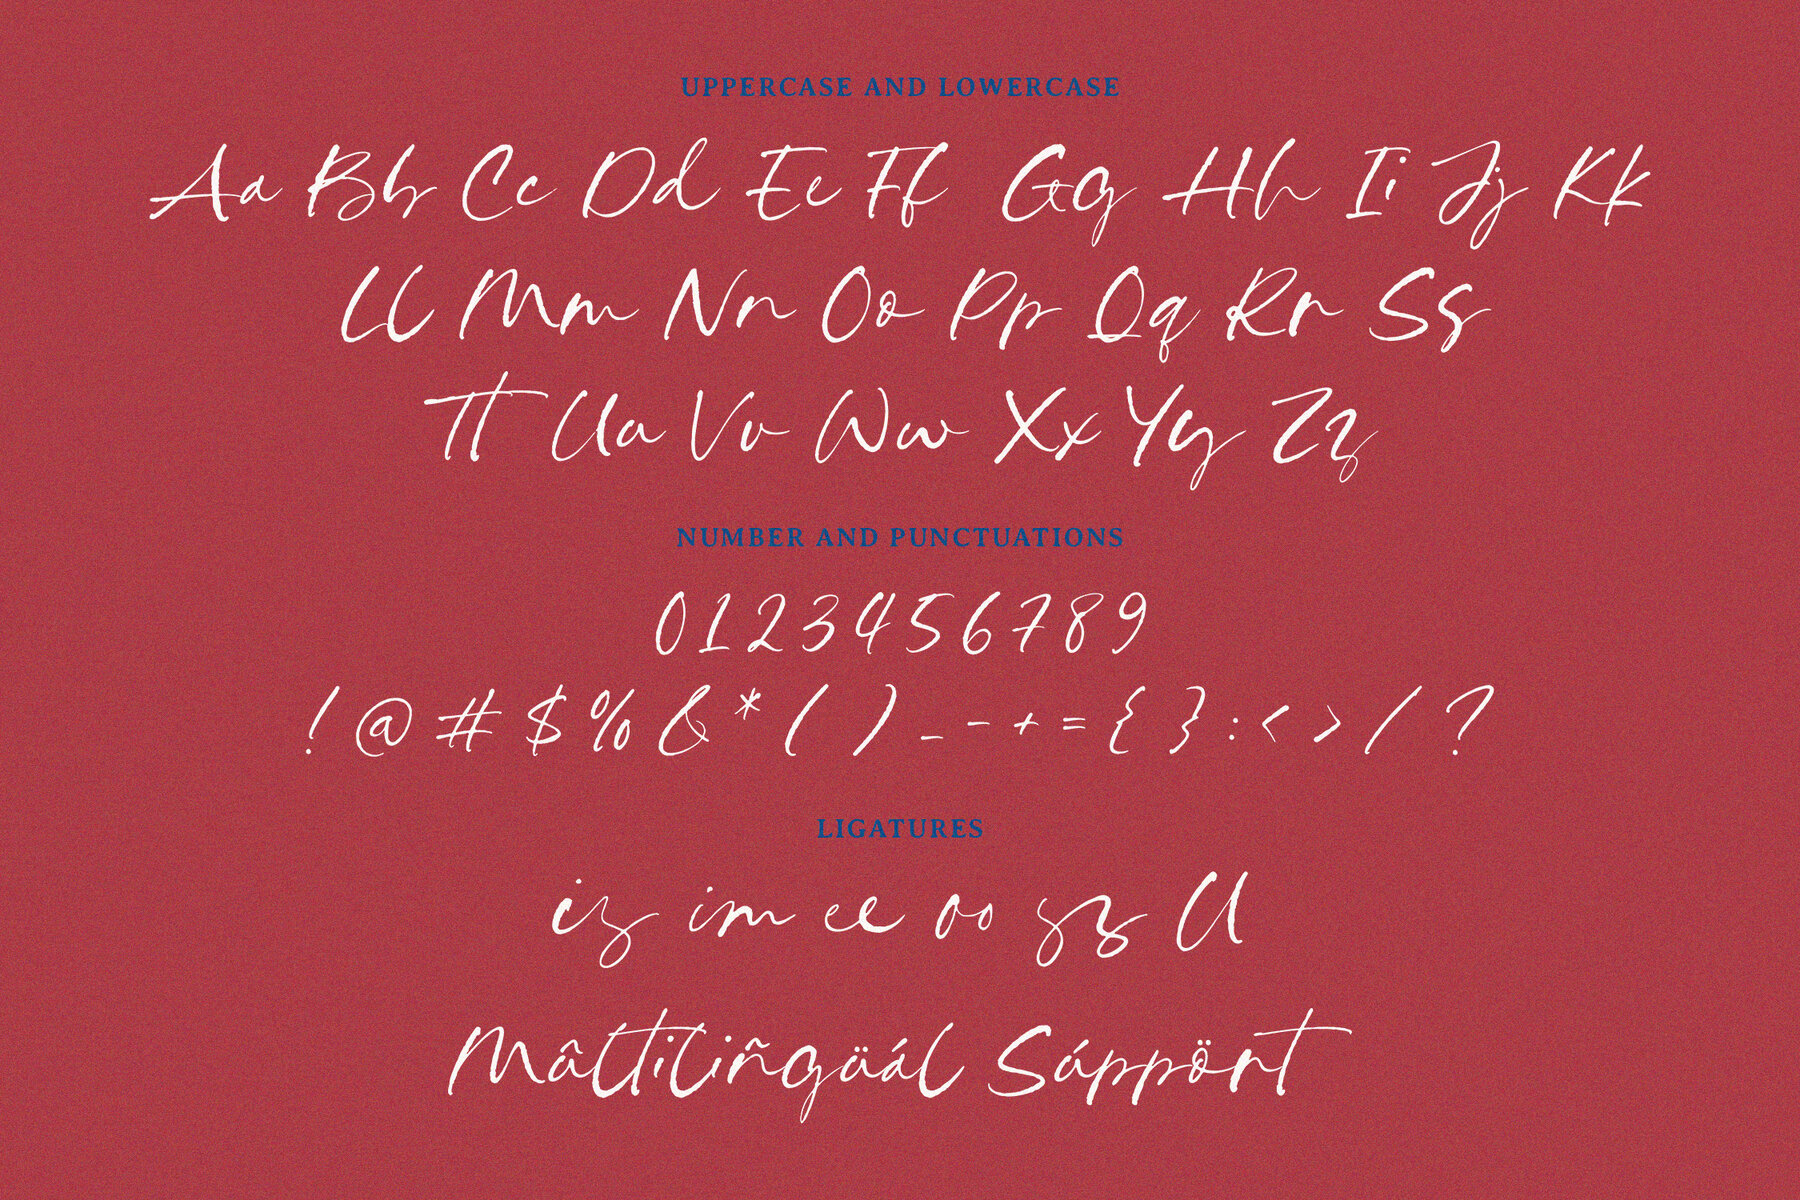 UPPERCASE AND LOWERCASE
Aa Bb Cc Dd Ee Ff Gg Hh Ii Jj Kk
Ll Mm Nn Oo Pp Qq Rr Ss
Tt Uu Vv Ww Xx Yy Zz
NUMBER AND PUNCTUATIONS
0 1 2 3 4 5 6 7 8 9
! @ # $ % & * ( ) _ - + = { } : < > / ?
LIGATURES
is im ee oo ss ll
Mûltiliñgüál Súppört